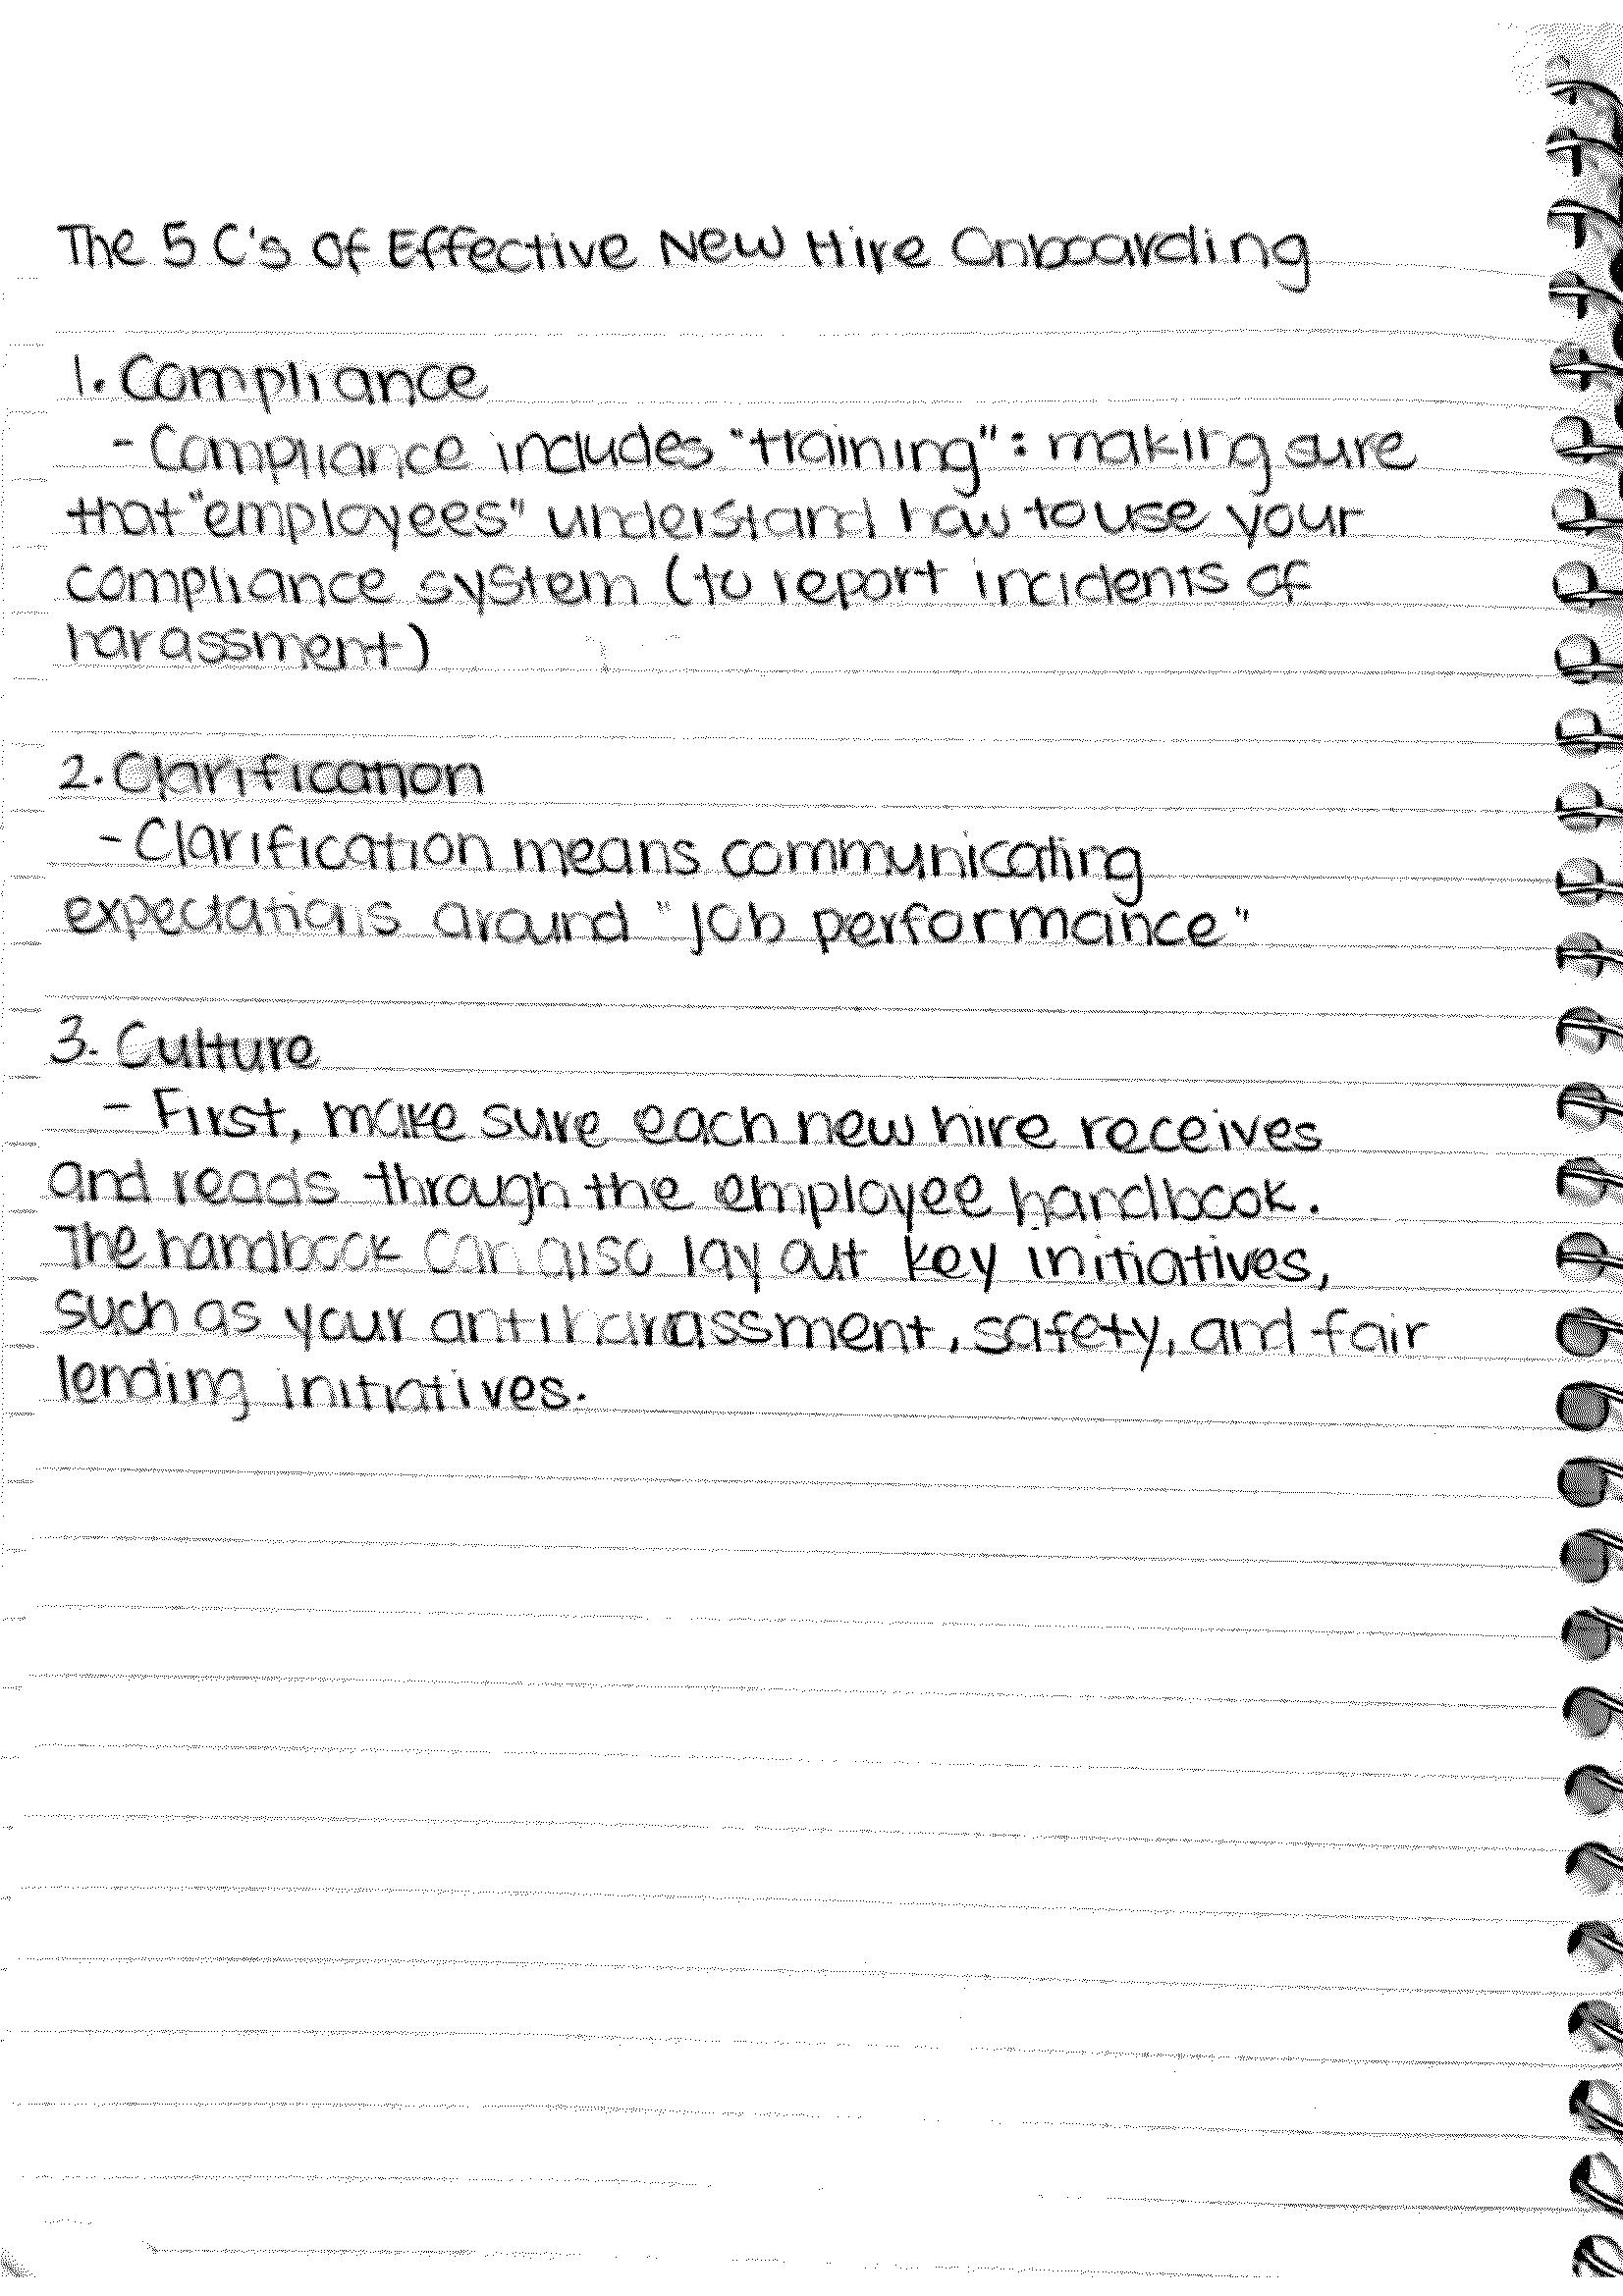 The 5 C's Of Effective New Hire Onboarding
1. Compliance
- Compliance includes "training": making sure
that "employees" understand how to use your
compliance system (to report incidents of
harassment)
2. Clarification
- Clarification means communicating
expectations around "job performance"
3. Culture
- First, make sure each new hire receives
and reads through the employee handbook.
The handbook can also lay out key initiatives,
such as your antiharassment, safety, and fair
lending initiatives.